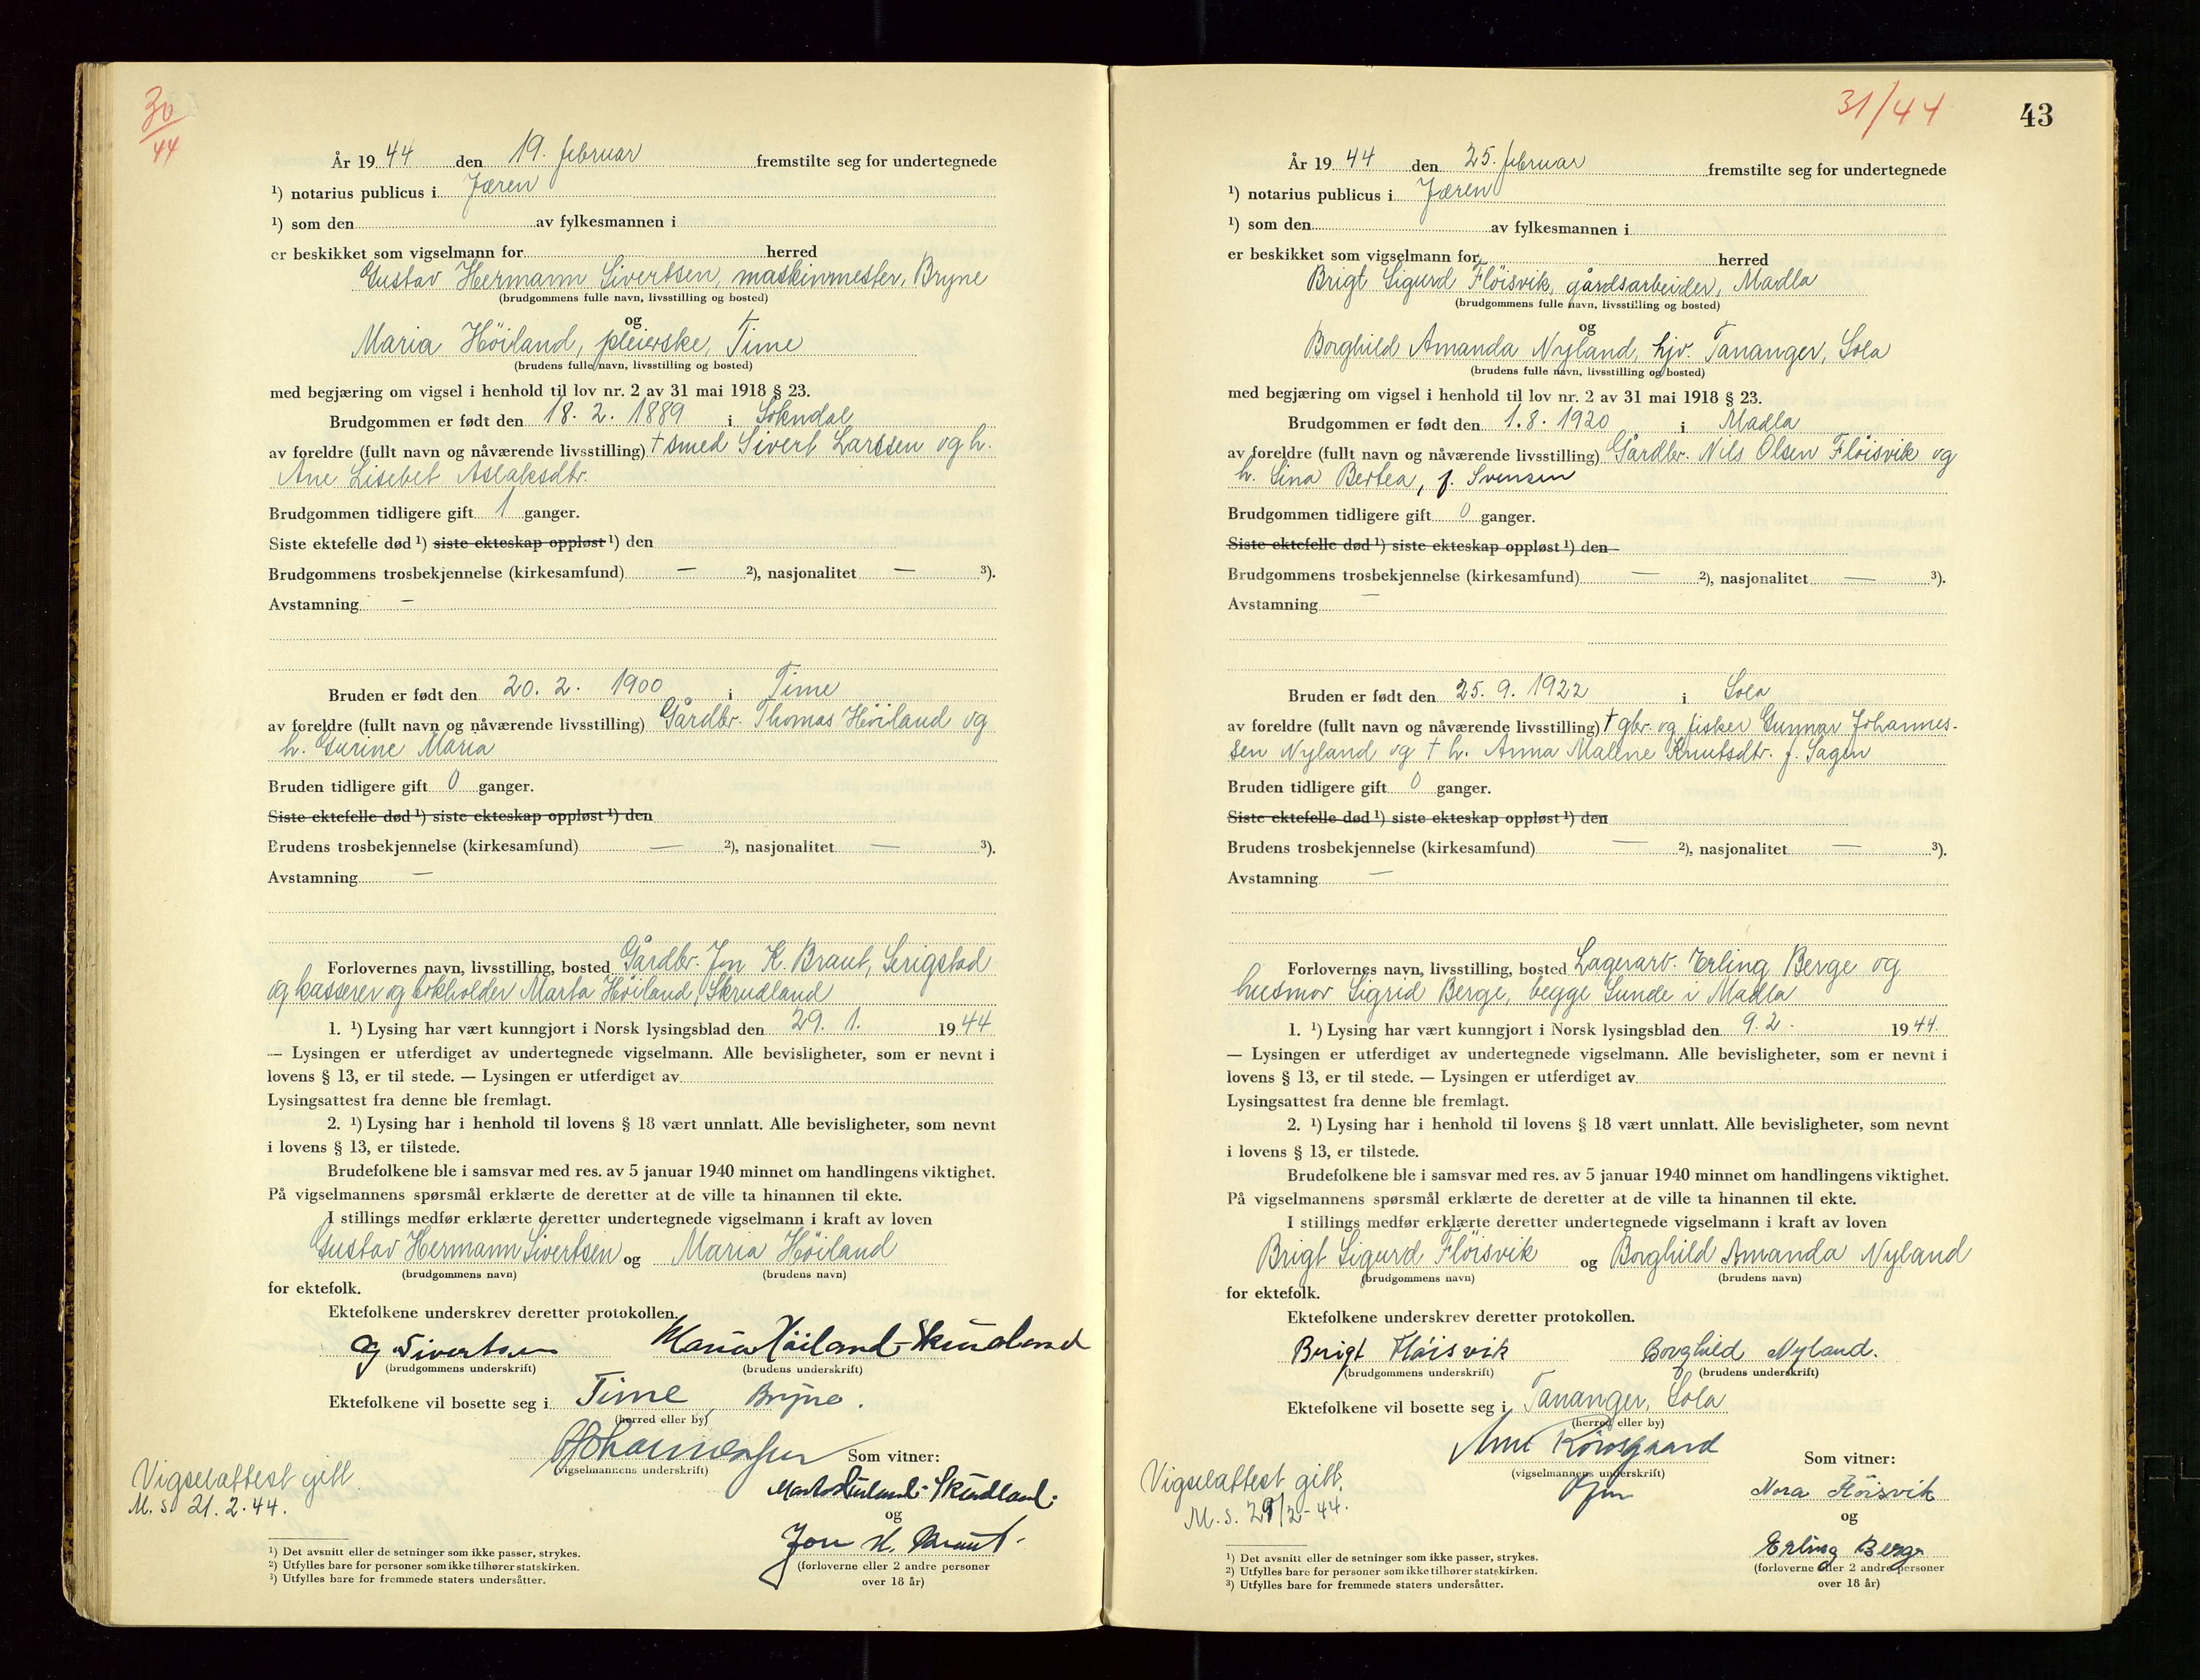 30
44
År 19 44 den 19. februar fremstilte seg for undertegnede
¹) notarius publicus i Jæren
¹) som den av fylkesmannen i
er beskikket som vigselmann for herred
Gustav Hermann Sivertsen, maskinmester, Bryne
(brudgommens fulle navn, livsstilling og bosted)
og
Maria Höiland, pleierske, Time
(brudens fulle navn, livsstilling og bosted)
med begjæring om vigsel i henhold til lov nr. 2 av 31 mai 1918 § 23.
Brudgommen er født den 18. 2. 1889 i Sokndal
av foreldre (fullt navn og nåværende livsstilling) † smed Sivert Larssen og h.
Ane Lisebet Aslaksdtr.
Brudgommen tidligere gift 1 ganger.
Siste ektefelle død ¹) siste ekteskap oppløst ¹) den
Brudgommens trosbekjennelse (kirkesamfund) — ²), nasjonalitet — ³).
Avstamning —
Bruden er født den 20. 2. 1900 i Time
av foreldre (fullt navn og nåværende livsstilling) Gårdbr. Thomas Höiland og
h. Gurine Maria
Bruden tidligere gift 0 ganger.
Siste ektefelle død ¹) siste ekteskap oppløst ¹) den
Brudens trosbekjennelse (kirkesamfund) — ²), nasjonalitet — ³).
Avstamning —
Forlovernes navn, livsstilling, bosted Gårdbr. Jon K. Braut, Serigstad
og kasserer og bokholder Marta Höiland, Skrudland
1. ¹) Lysing har vært kunngjort i Norsk lysingsblad den 29. 1. 19 44
— Lysingen er utferdiget av undertegnede vigselmann. Alle bevisligheter, som er nevnt i
lovens § 13, er til stede. — Lysingen er utferdiget av
Lysingsattest fra denne ble fremlagt.
2. ¹) Lysing har i henhold til lovens § 18 vært unnlatt. Alle bevisligheter, som nevnt
i lovens § 13, er tilstede.
Brudefolkene ble i samsvar med res. av 5 januar 1940 minnet om handlingens viktighet.
På vigselmannens spørsmål erklærte de deretter at de ville ta hinannen til ekte.
I stillings medfør erklærte deretter undertegnede vigselmann i kraft av loven
Gustav Hermann Sivertsen og Maria Höiland
(brudgommens navn) (brudens navn)
for ektefolk.
Ektefolkene underskrev deretter protokollen.
G Sivertsen Maria Höiland-Skrudland
(brudgommens underskrift) (brudens underskrift)
Ektefolkene vil bosette seg i Time, Bryne.
(herred eller by)
Johannessen Som vitner:
(vigselmannens underskrift)
Vigselattest gitt.
M. S. 21. 2. 44.
Marta Høiland-Skrudland.
og
Jon K. Braut.
(forloverne eller 2 andre personer
over 18 år)
¹) Det avsnitt eller de setninger som ikke passer, strykes.
²) Utfylles bare for personer som ikke tilhører statskirken.
³) Utfylles bare for fremmede staters undersåtter.
31/44 43
År 19 44 den 25. februar fremstilte seg for undertegnede
¹) notarius publicus i Jæren
¹) som den av fylkesmannen i
er beskikket som vigselmann for herred
Brigt Sigurd Flöisvik, gårdsarbeider, Madla
(brudgommens fulle navn, livsstilling og bosted)
og
Borghild Amanda Nyland, hjv. Tananger, Sola
(brudens fulle navn, livsstilling og bosted)
med begjæring om vigsel i henhold til lov nr. 2 av 31 mai 1918 § 23.
Brudgommen er født den 1. 8. 1920 i Madla
av foreldre (fullt navn og nåværende livsstilling) Gårdbr. Nils Olsen Flöisvik og
h. Sina Bertea, f. Svensen
Brudgommen tidligere gift 0 ganger.
Siste ektefelle død ¹) siste ekteskap oppløst ¹) den
Brudgommens trosbekjennelse (kirkesamfund) — ²), nasjonalitet — ³).
Avstamning —
Bruden er født den 25. 9. 1922 i Sola
av foreldre (fullt navn og nåværende livsstilling) † gbr. og fisker Gunnar Johannes-
sen Nyland og † h. Anna Malene Knutsdtr. f. Sagen
Bruden tidligere gift 0 ganger.
Siste ektefelle død ¹) siste ekteskap oppløst ¹) den
Brudens trosbekjennelse (kirkesamfund) — ²), nasjonalitet — ³).
Avstamning —
Forlovernes navn, livsstilling, bosted Lagerarb. Erling Berge og
husmor Sigrid Berge, begge Sunde i Madla
1. ¹) Lysing har vært kunngjort i Norsk lysingsblad den 9. 2. 19 44.
— Lysingen er utferdiget av undertegnede vigselmann. Alle bevisligheter, som er nevnt i
lovens § 13, er til stede. — Lysingen er utferdiget av
Lysingsattest fra denne ble fremlagt.
2. ¹) Lysing har i henhold til lovens § 18 vært unnlatt. Alle bevisligheter, som nevnt
i lovens § 13, er tilstede.
Brudefolkene ble i samsvar med res. av 5 januar 1940 minnet om handlingens viktighet.
På vigselmannens spørsmål erklærte de deretter at de ville ta hinannen til ekte.
I stillings medfør erklærte deretter undertegnede vigselmann i kraft av loven
Brigt Sigurd Flöisvik og Borghild Amanda Nyland
(brudgommens navn) (brudens navn)
for ektefolk.
Ektefolkene underskrev deretter protokollen.
Brigt Flöisvik Borghild Nyland.
(brudgommens underskrift) (brudens underskrift)
Ektefolkene vil bosette seg i Tananger, Sola
(herred eller by)
Som vitner:
(vigselmannens underskrift)
Vigselattest gitt.
M. S. 29/2-44.
Nora Flöisvik
og
Erling Berge
(forloverne eller 2 andre personer
over 18 år)
¹) Det avsnitt eller de setninger som ikke passer, strykes.
²) Utfylles bare for personer som ikke tilhører statskirken.
³) Utfylles bare for fremmede staters undersåtter.